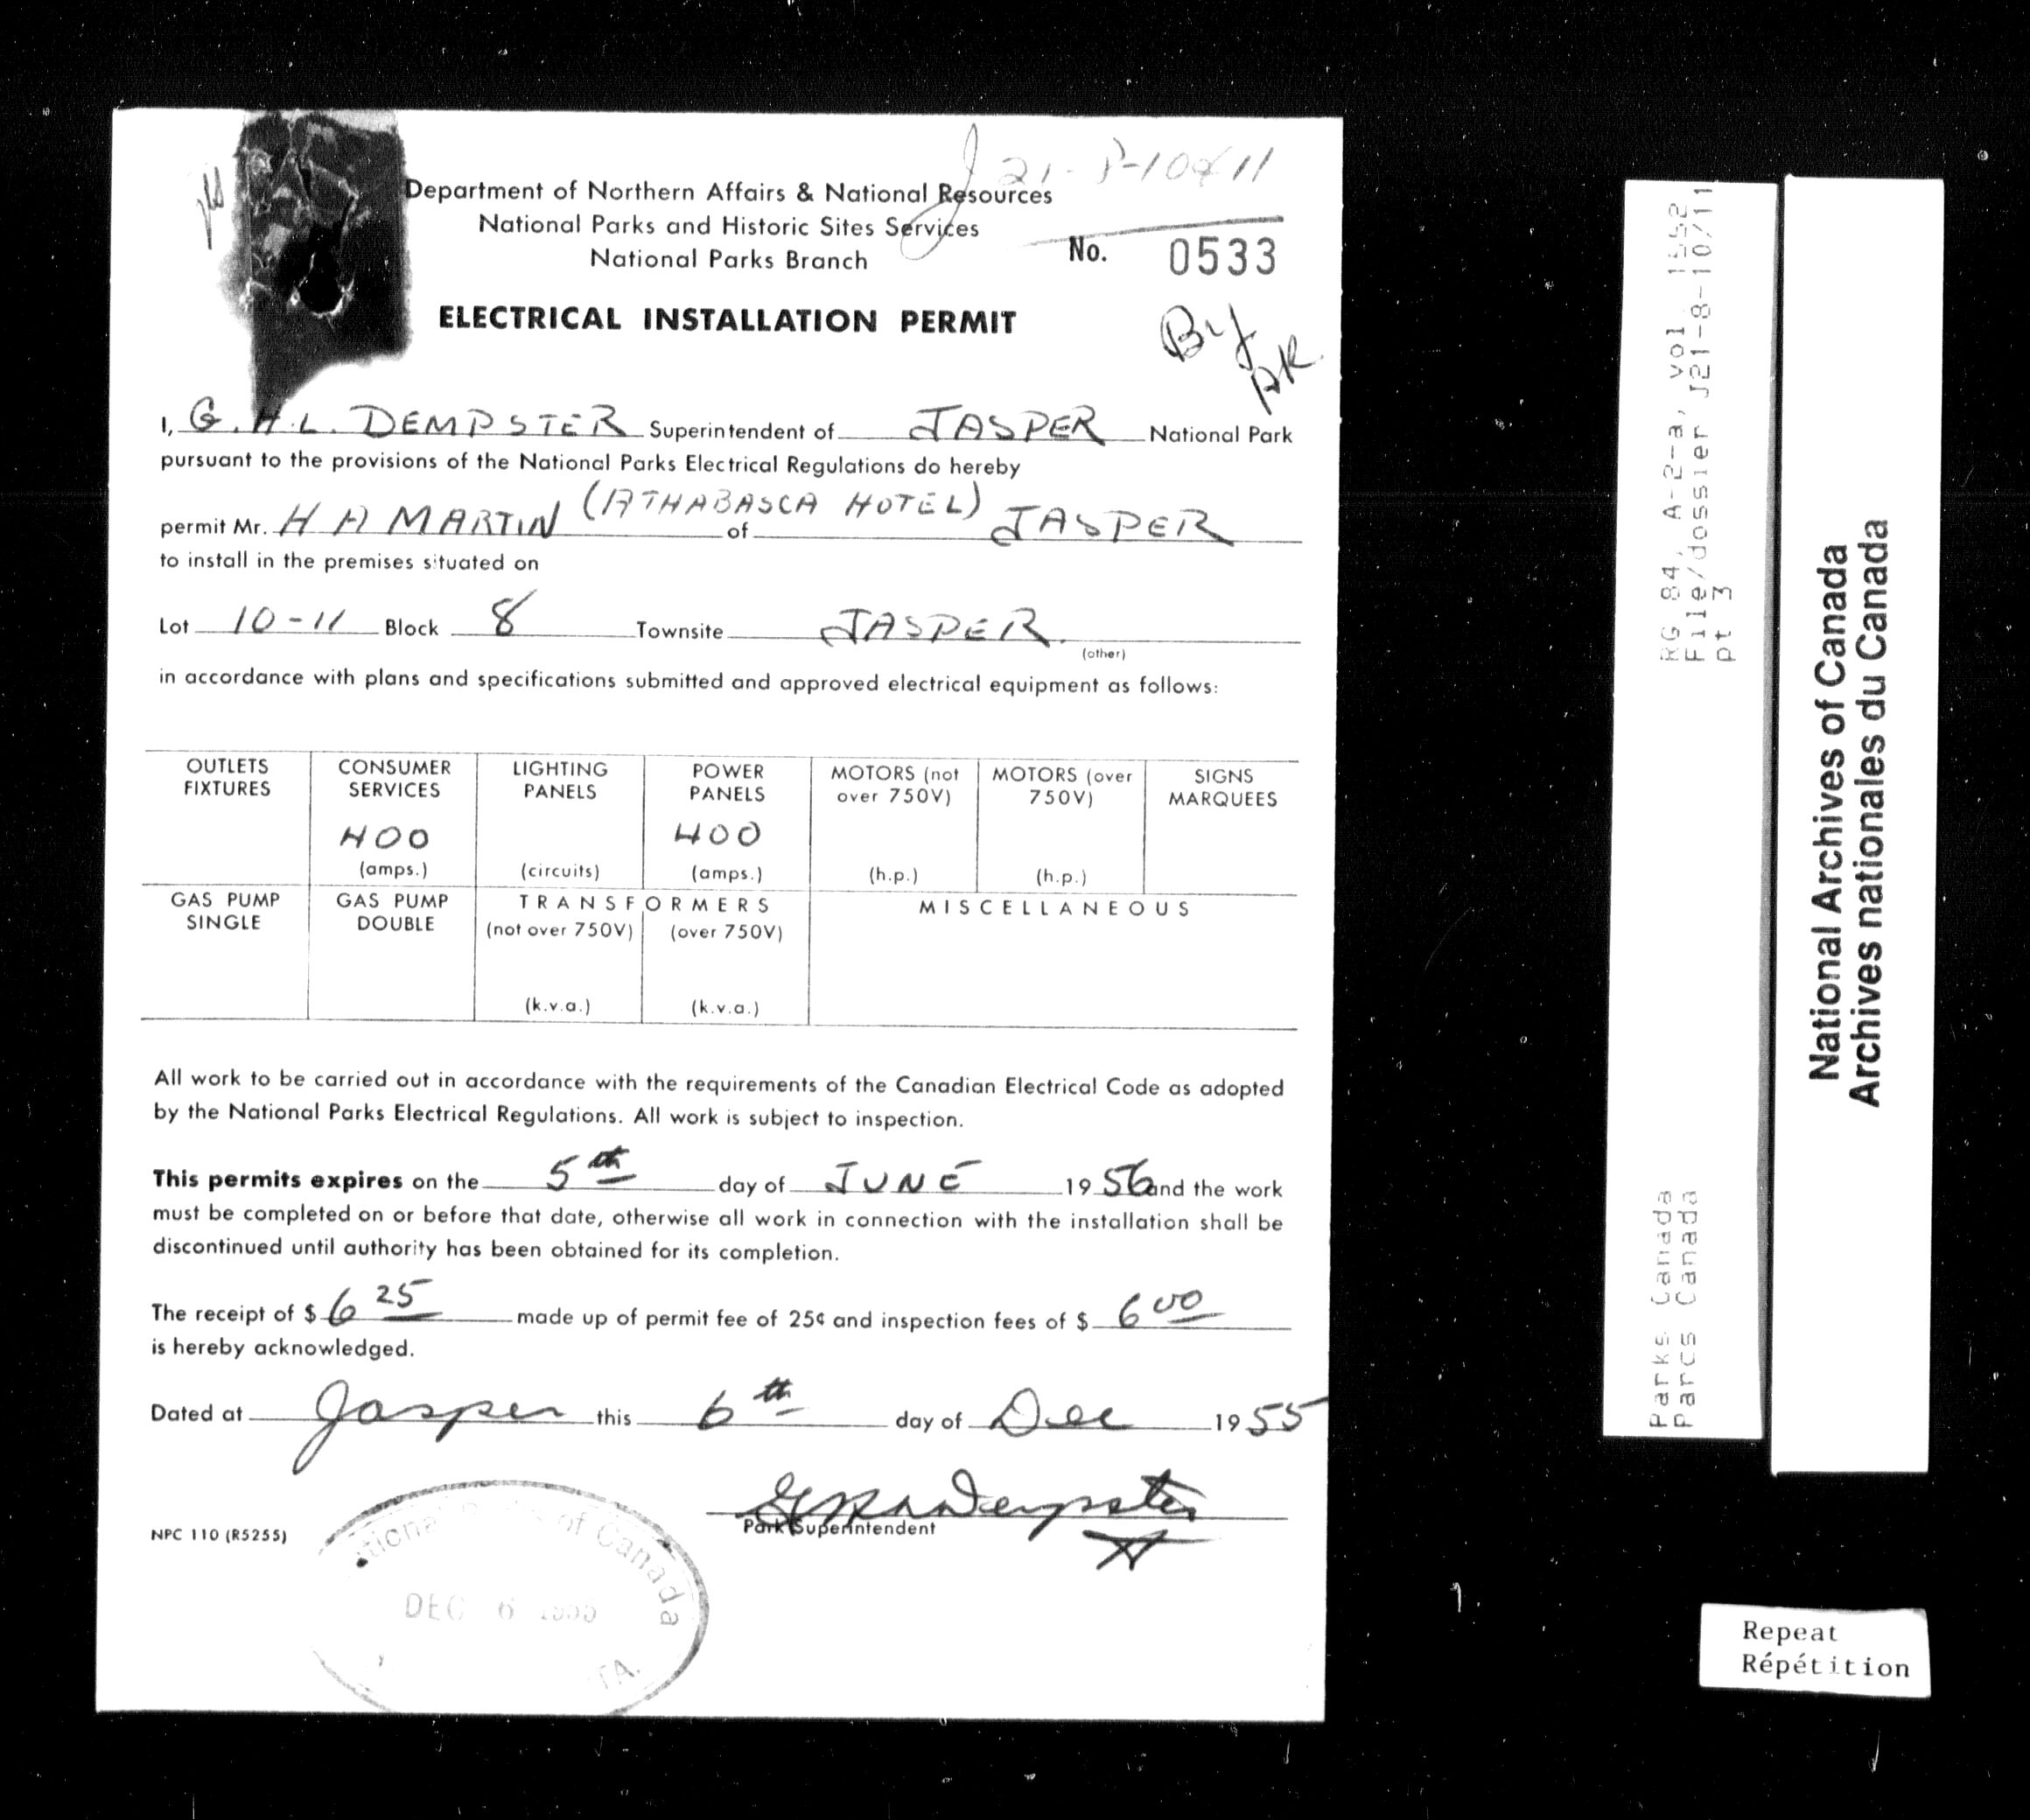 J 21-8-10&11
Department of Northern Affairs & National Resources
National Parks and Historic Sites Services
National Parks Branch
No. 0533
ELECTRICAL INSTALLATION PERMIT
I, G.H.L. DEMPSTER Superintendent of JASPER National Park
pursuant to the provisions of the National Parks Electrical Regulations do hereby
permit Mr. H A MARTIN (ATHABASCA HOTEL) of JASPER
to install in the premises situated on
Lot 10-11 Block 8 Townsite JASPER.
(other)
in accordance with plans and specifications submitted and approved electrical equipment as follows:
OUTLETS FIXTURES
CONSUMER SERVICES 400 (amps.)
LIGHTING PANELS (circuits)
POWER PANELS 400 (amps.)
MOTORS (not over 750V) (h.p.)
MOTORS (over 750V) (h.p.)
SIGNS MARQUEES
GAS PUMP SINGLE
GAS PUMP DOUBLE
TRANSFORMERS
(not over 750V) (k.v.a.)
(over 750V) (k.v.a.)
MISCELLANEOUS
All work to be carried out in accordance with the requirements of the Canadian Electrical Code as adopted
by the National Parks Electrical Regulations. All work is subject to inspection.
This permits expires on the 5th day of JUNE 1956 and the work
must be completed on or before that date, otherwise all work in connection with the installation shall be
discontinued until authority has been obtained for its completion.
The receipt of $ 6 25 made up of permit fee of 25¢ and inspection fees of $ 6 00
is hereby acknowledged.
Dated at Jasper this 6th day of Dec 1955
Dempster
Park Superintendent
NPC 110 (R5255)
of Canada
DEC 6 1955
TA.
RG 84, A-2-a, vol.
File/dossier J21-8-10/11
pt 3
Parks Canada
Parcs Canada
National Archives of Canada
Archives nationales du Canada
Repeat
Répétition